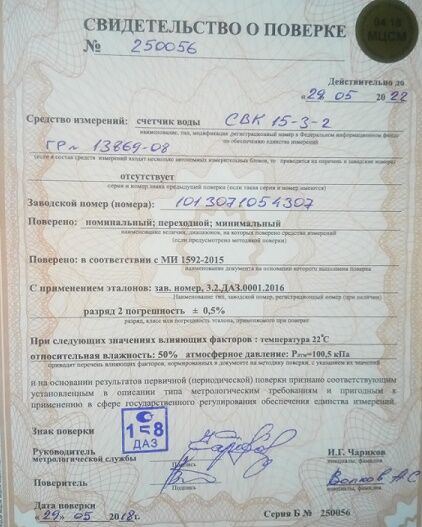 04 18
МЦСМ
СВИДЕТЕЛЬСТВО О ПОВЕРКЕ
№ 250056
Действительно до
«29» 05 2022
Средство измерений: счетчик воды СВК 15-3-2
наименование, тип, модификация, регистрационный номер в Федеральном информационном фонде
по обеспечению единства измерений
ГР№ 13869-08
(если в состав средств измерений входят несколько автономных измерительных блоков, то приводится их перечень и заводские номера)
отсутствует
серия и номер знака предыдущей поверки (если такая серия и номер имеются)
Заводской номер (номера): 1013071054307
Поверено: номинальный; переходной; минимальный
наименование величин, диапазонов, на которых поверено средство измерений
(если предусмотрено методикой поверки)
Поверено: в соответствии с МИ 1592-2015
наименование документа на основании которого выполнена поверка
С применением эталонов: зав. номер, 3.2.ДАЗ.0001.2016
(Наименование тип, заводской номер, регистрационный номер (при наличии)
разряд 2 погрешность ± 0,5%
разряд, класс или погрешность эталона, применяемого при поверке
При следующих значениях влияющих факторов : температура 22°С
относительная влажность: 50% атмосферное давление: Ратм=100,5 кПа
приводят перечень влияющих факторов, нормированных в документе на методику поверки, с указанием их значений
и на основании результатов первичной (периодической) поверки признано соответствующим
установленным в описании типа метрологическим требованиям и пригодным к
применению в сфере государственного регулирования обеспечения единства измерений.
Знак поверки
1 8
ДАЗ
Руководитель
метрологической службы
Подпись
И.Г. Чариков
инициалы, фамилия
Поверитель
Подпись
Волков А С
инициалы, фамилия
Дата поверки
«29» 05 2018г.
Серия Б № 250056